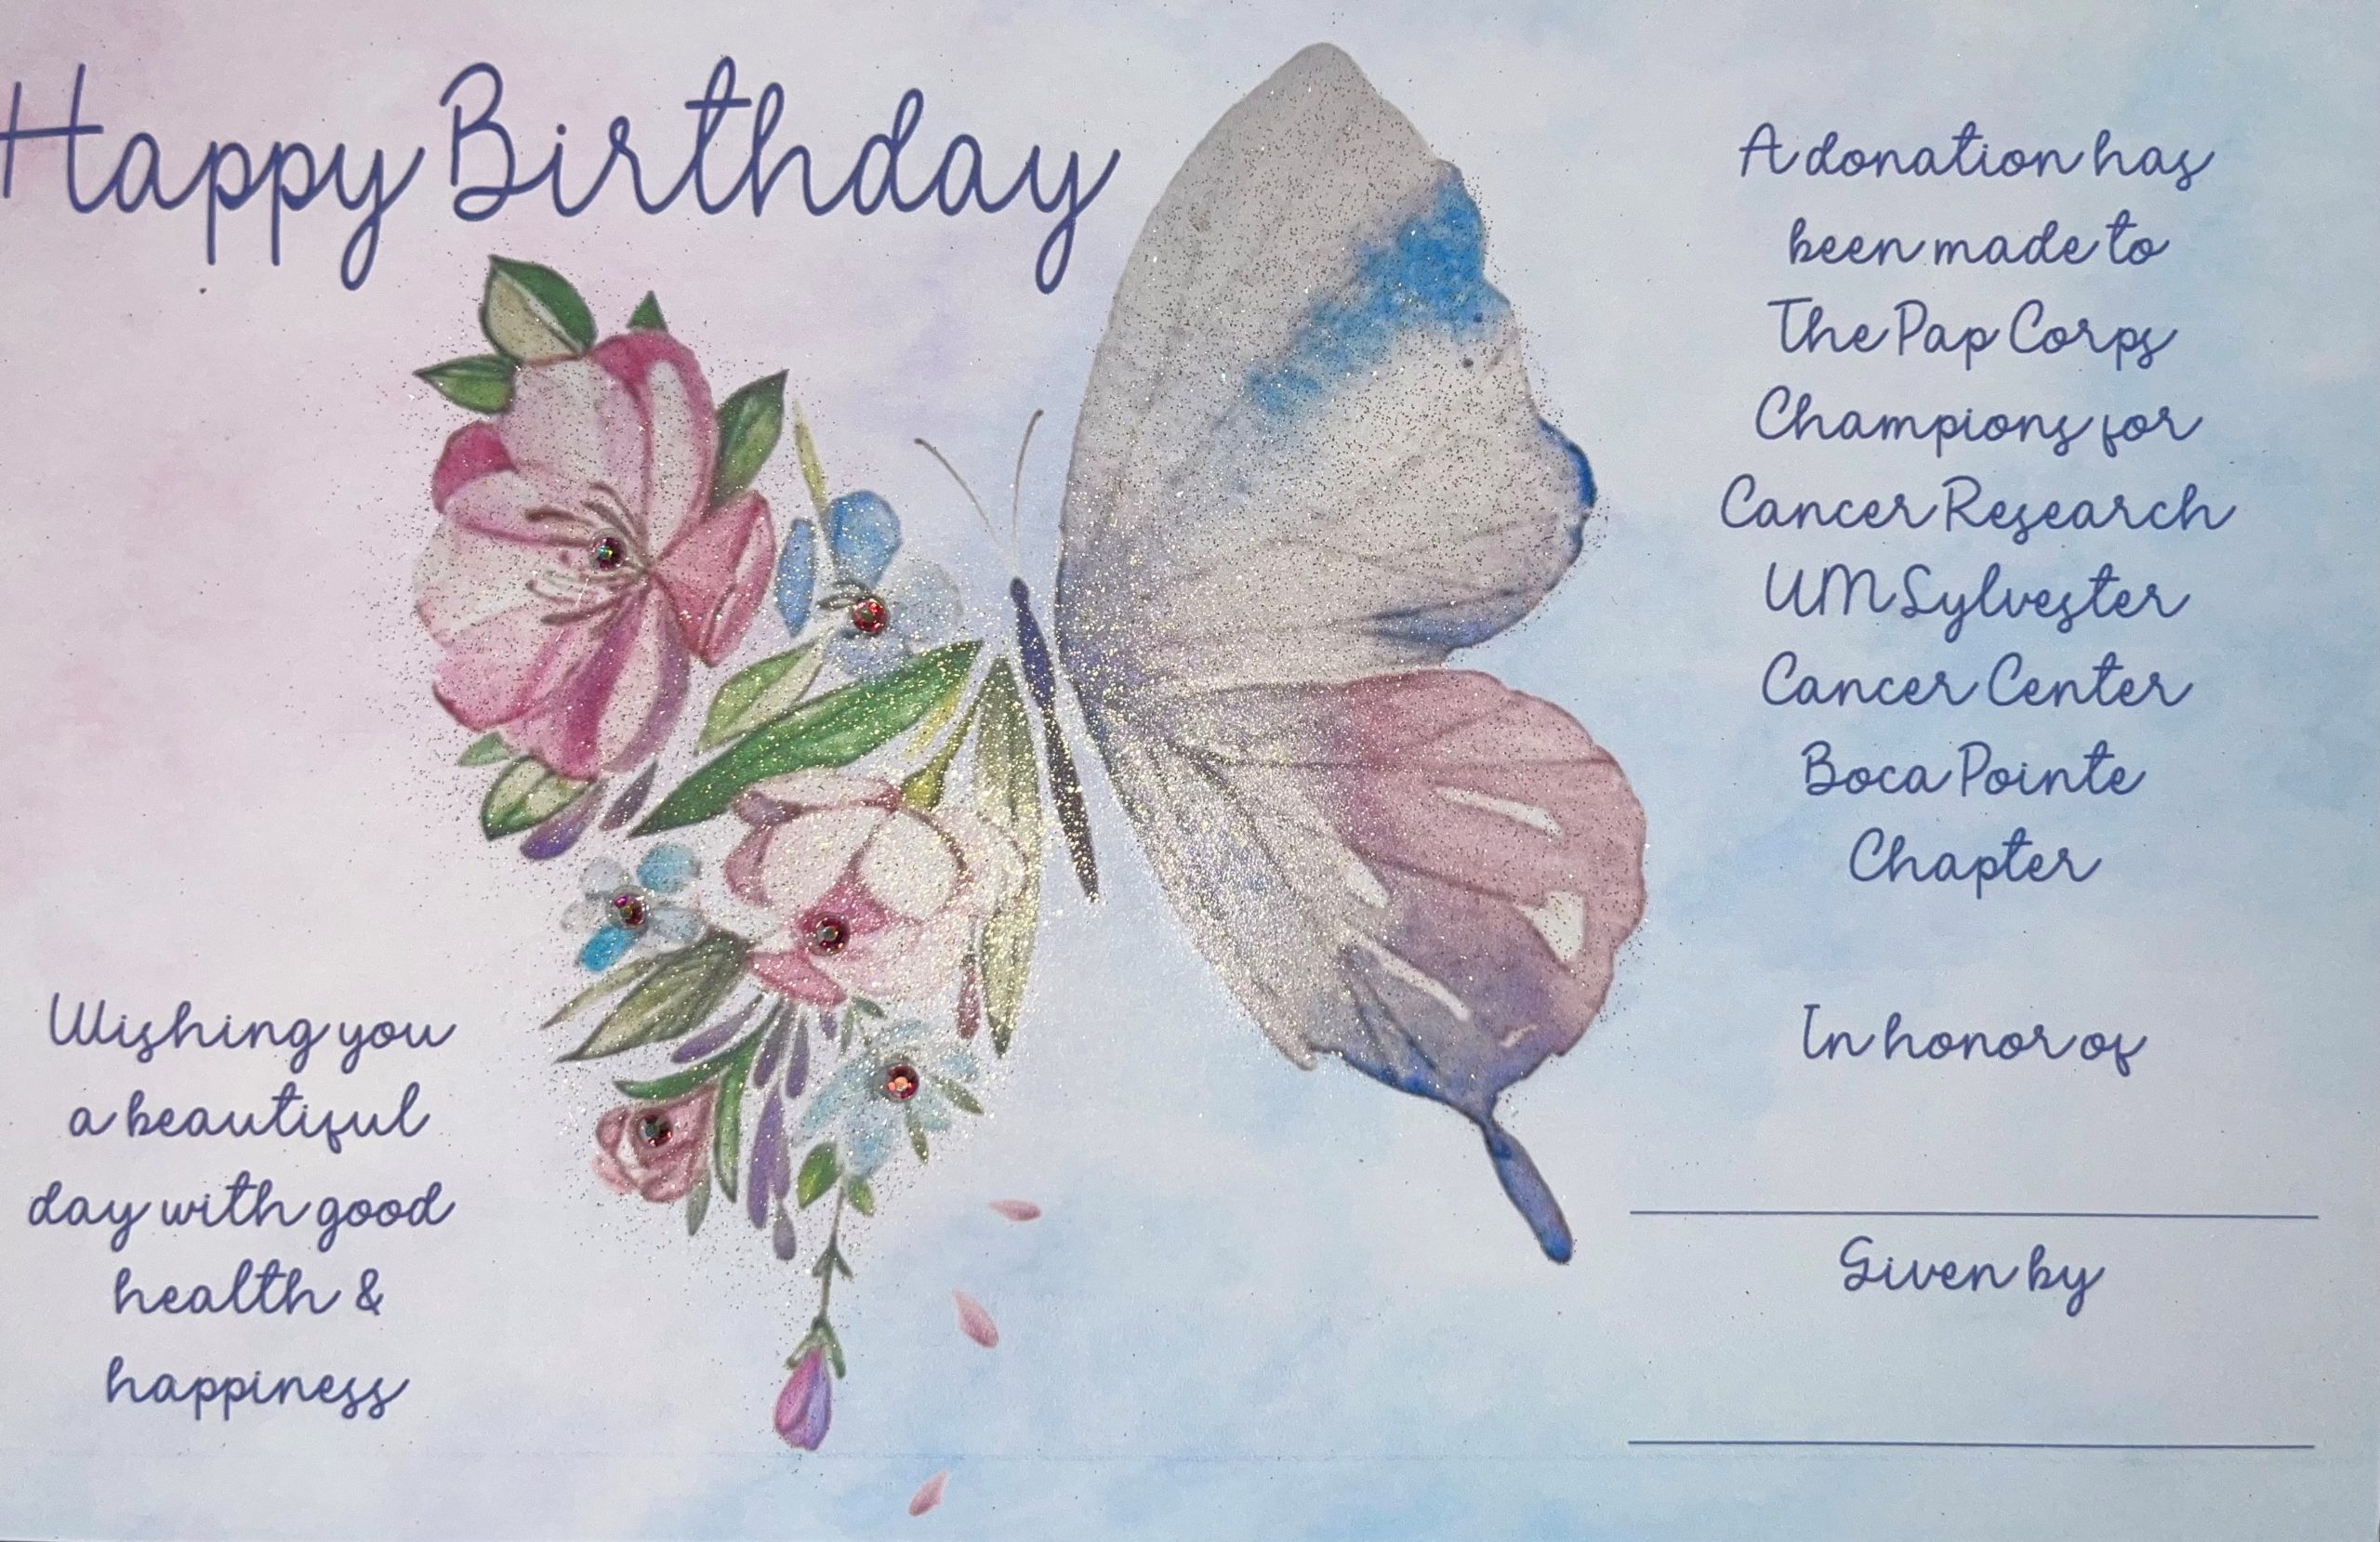 Happy Birthday
Wishing you
a beautiful
day with good
health &
happiness
A donation has
been made to
The Pap Corps
Champions for
Cancer Research
UM Sylvester
Cancer Center
Boca Pointe
Chapter
In honor of
Given by